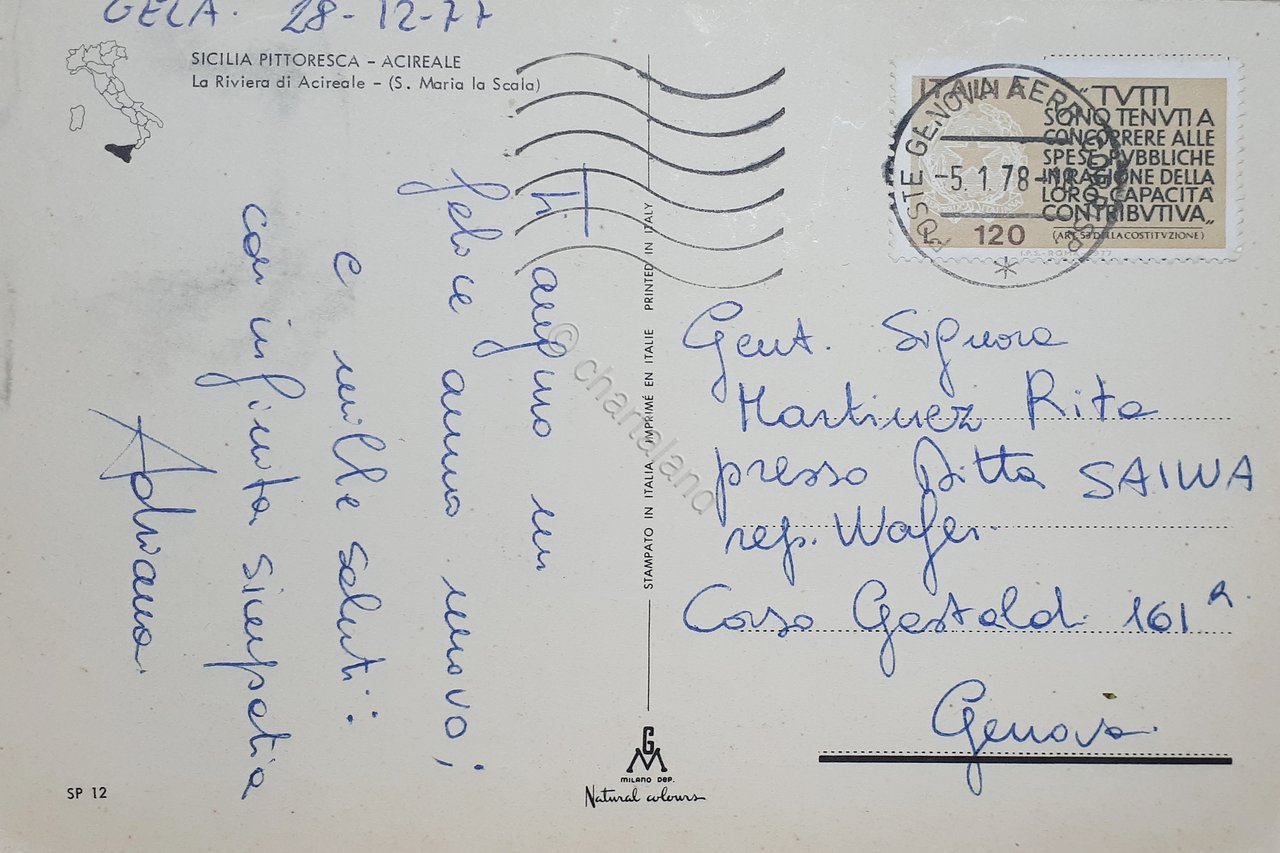 GELA. 28-12-77
SICILIA PITTORESCA - ACIREALE
La Riviera di Acireale - (S. Maria la Scala)
Ti auguro un
felice anno nuovo;
e mille saluti:
con infinita simpatia
Adriana.
STAMPATO IN ITALIA IMPRIMÉ EN ITALIE PRINTED IN ITALY
ITALIA
"TVTTI
SONO TENVTI A
CONCORRERE ALLE
SPESE PVBBLICHE
IN RAGIONE DELLA
LORO CAPACITÀ
CONTRIBVTIVA„
(ART. 53 DELLA COSTITVZIONE)
L. 120
I.P.S. - ROMA 1977
POSTE GENOVA AEROPORTO
-5.1.78-18
Gent. Signora
Martinez Rita
presso Ditta SAIWA
rep. Wafer.
Corso Gastaldi 161 R.
Genova.
GM
MILANO DEP.
Natural colours
SP 12
© chartaland